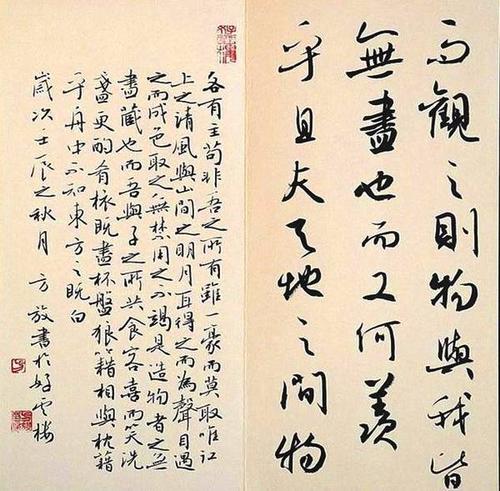 而觀之則物與我皆
無盡也而又何羨
乎且夫天地之間物
各有主苟非吾之所有雖一豪而莫取唯江
上之清風與山間之明月耳得之而為聲目遇
之而成色取之無禁用之不竭是造物者之無
盡藏也而吾與子之所共食客喜而笑洗
盞更酌肴核既盡杯盤狼籍相與枕籍
乎舟中不知東方之既白
歲次壬辰之秋月 方放書於好雲樓